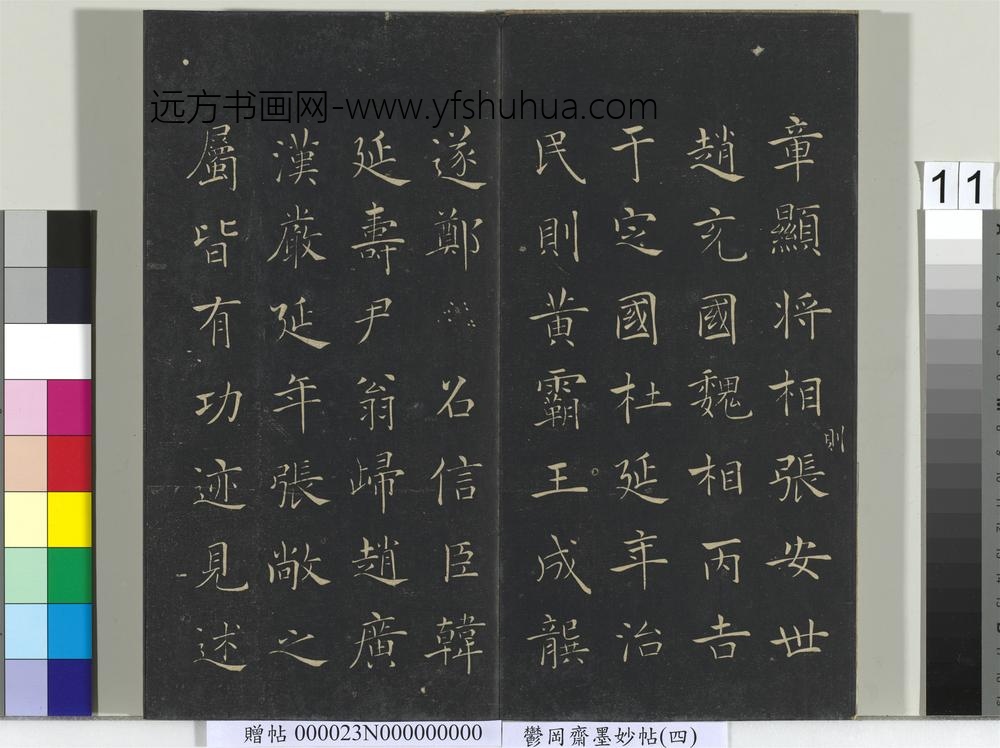 远方书画网-www.yfshuhua.com
章顯將相張安世
則
趙充國魏相丙吉
于定國杜延年治
民則黃霸王成龔
遂鄭 召信臣韓
延壽尹翁歸趙廣
漢嚴延年張敞之
屬皆有功迹見述
11
贈帖 000023N000000000
鬱岡齋墨妙帖(四)